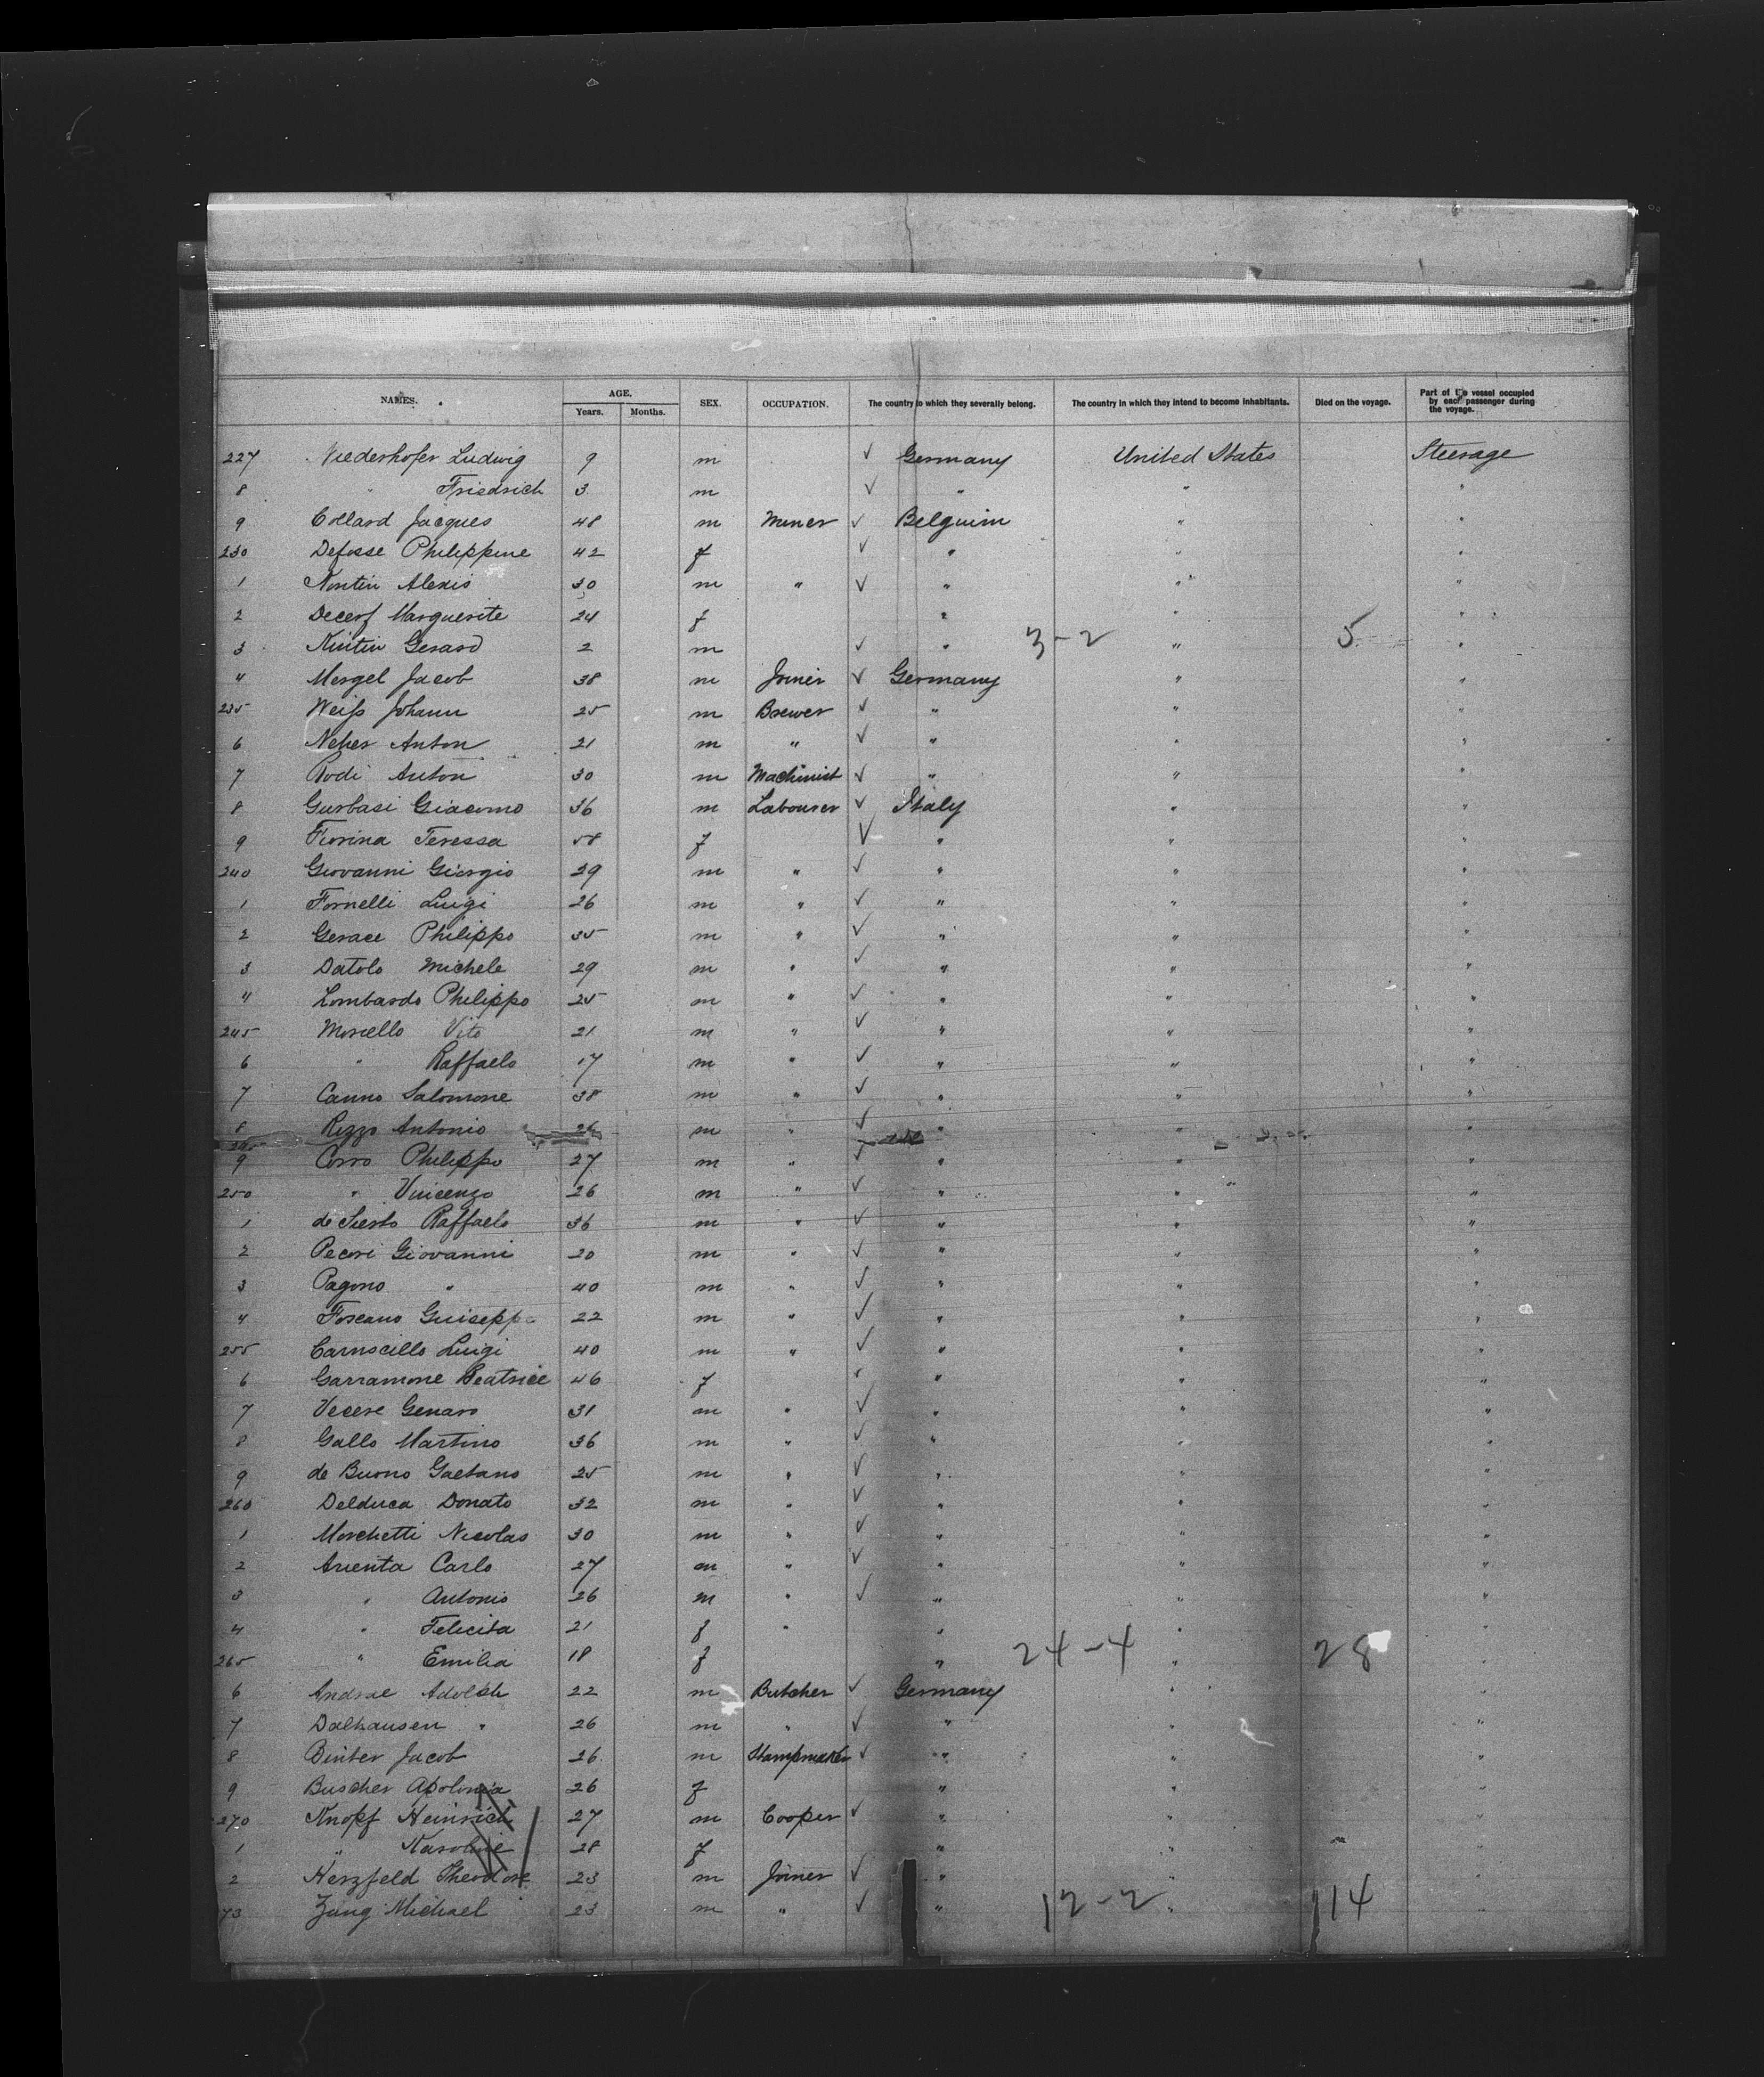 NAMES. AGE. SEX. OCCUPATION. The country to which they severally belong. The country in which they intend to become inhabitants. Died on the voyage. Part of the vessel occupied by each passenger during the voyage.
Years. Months.
227 Niederhofer Ludwig 9 m ✓ Germany United States Steerage
8 " Friedrich 3 m ✓ " " "
9 Collard Jacques 48 m Miner ✓ Belguim " "
230 Defosse Philippine 42 f ✓ " " "
1 Nontin Alexis 30 m " ✓ " " "
2 Decerf Marguerite 24 f " " "
3 Gerard 2 m ✓ " 3-2 " 5 "
4 Mergel Jacob 38 m Joiner ✓ Germany " "
235 Weiss Johann 25 m Brewer ✓ " " "
6 Neher Anton 21 m " ✓ " " "
7 Rodi Anton 30 m Machinist ✓ " " "
8 Gurbasi Giacomo 36 m Labourer ✓ Italy " "
9 Fiorina Teressa 58 f ✓ " " "
240 Giovanni Giorgio 29 m " ✓ " " "
1 Fornelli Luigi 26 m " ✓ " " "
2 Gerace Philippo 35 m " ✓ " " "
3 Datolo Michele 29 m " ✓ " " "
4 Lombardo Philippo 25 m " ✓ " " "
245 Morello Vito 21 m " ✓ " " "
6 " Raffaelo 17 m " ✓ " " "
7 Canno Salomone 38 m " ✓ " " "
8 Rizzo Antonio 26 m " ✓ " " "
9 Corro Philippo 27 m " ✓ " " "
250 " Vincenzo 26 m " ✓ " " "
1 de Siesto Raffaelo 36 m " ✓ " " "
2 Pecori Giovanni 20 m " ✓ " " "
3 Pagono " 40 m " ✓ " " "
4 Foscano Guiseppe 22 m " ✓ " " "
255 Luigi 40 m " ✓ " " "
6 Garramone Beatrice 46 f ✓ " " "
7 Vecere Genaro 31 m " ✓ " " "
8 Gallo Martino 36 m " ✓ " " "
9 de Buono Gaetano 25 m " ✓ " " "
260 Delduca Donato 32 m " ✓ " " "
1 Morchetti Nicolas 30 m " ✓ " " "
2 Arienta Carlo 27 m " ✓ " " "
3 " Antonio 26 m " ✓ " " "
4 " Felicita 21 f " " " "
265 " Emilia 18 f " 24-4 " 28 "
6 Andrae Adolph 22 m Butcher ✓ Germany " "
7 Dalhausen " 26 m " ✓ " " "
8 Binter Jacob 26 m Stampmaker ✓ " " "
9 Buscher Apolonia 26 f " " "
270 Knopf Heinrich 27 m Cooper ✓ " " "
1 " Karoline 28 f " " "
2 Herzfeld Theodore 23 m Joiner ✓ " " "
73 Zung Michael 23 m " ✓ " 12-2 " 14 "